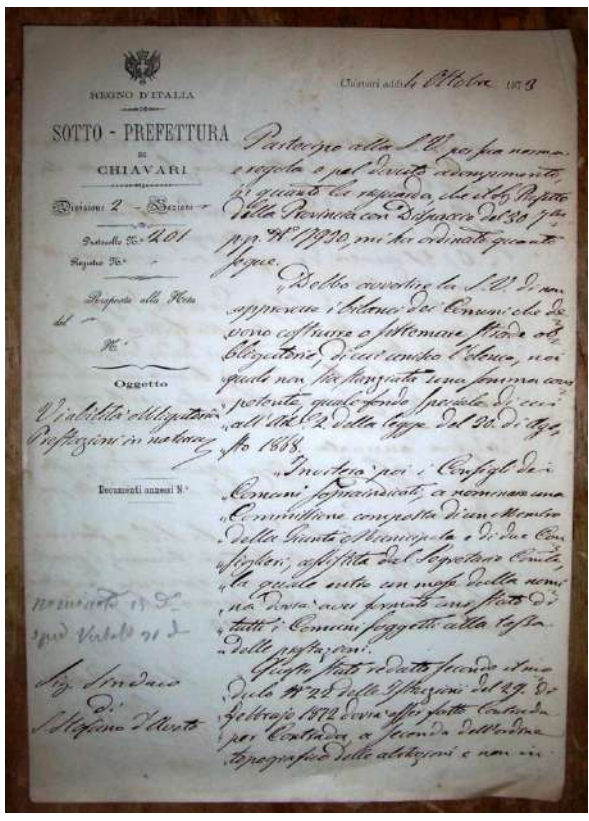 REGNO D'ITALIA
SOTTO - PREFETTURA
DI
CHIAVARI
Divisione 2 - Sezione
Protocollo N.° 1201
Registro N.°
Risposta alla Nota
del
N.°
Oggetto
Viabilità obbligatoria
Prestazioni in natura
Documenti annessi N.°
Sig. Sindaco
di
S. Stefano d'Aveto
Chiavari addì 4 Ottobre 1873
Partecipo alla S. V. per sua norma
e regola e pel dovuto adempimento
in quanto la riguarda, che il Sig. Prefetto
della Provincia con Dispaccio del 30 7bre
p.p. N° 17930, mi ha ordinato quanto
segue.
"Debbo avvertire la S. V. di non
approvare i bilanci dei Comuni che de=
vono costrurre o sistemare strade ob=
bligatorie, di cui unisco l'elenco, nei
quali non sia stanziata una somma com=
petente quale fondo speciale di cui
all'Art. 2 della legge del 30 di Ago,
sto 1868.
"Inviterà poi i Consigli dei
Comuni sopraindicati, a nominare una
Commissione composta di un Membro
della Giunta Municipale e di due Con
siglieri, assistita dal Segretario Comle,
la quale entro un mese dalla nomi
na dovrà aver formato uno Stato di
tutti i Comuni soggetti alla tassa
delle prestazioni.
Questo Stato redatto secondo il mo
dulo N° 28 delle Istruzioni del 29 di
febbrajo 1872 dovrà esser fatto Contrada
per Contrada, a seconda dell'ordine
topografico delle abitazioni e non in